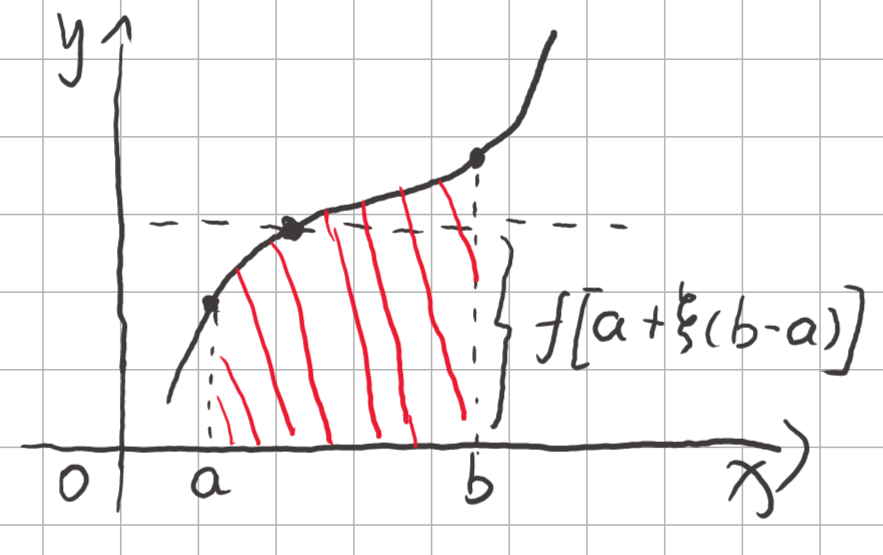 y
f[a+ξ(b-a)]
0 a b x